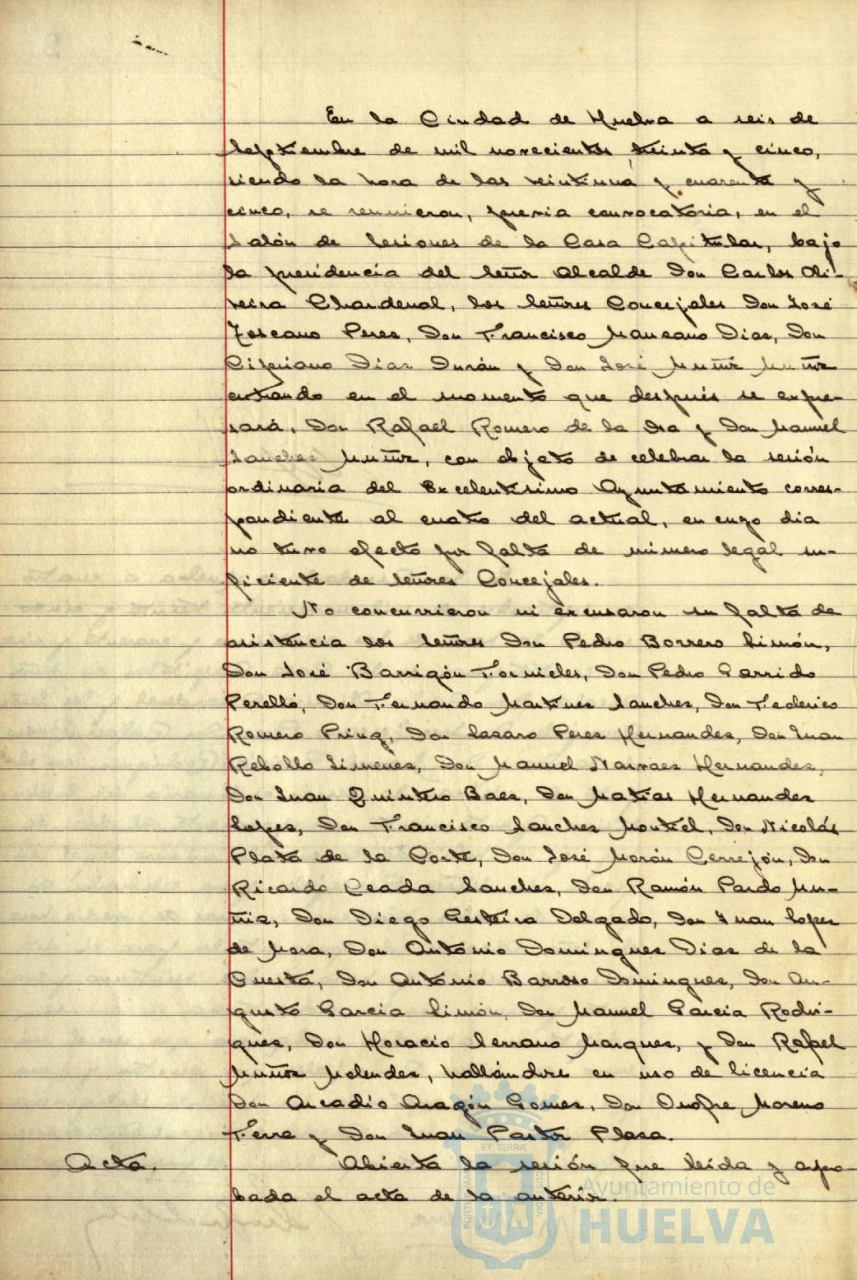 En la Ciudad de Huelva a seis de
Septiembre de mil novecientos treinta y cinco,
siendo la hora de las veintiuna y cuarenta y
cinco, se reunieron, previa convocatoria, en el
Salón de Sesiones de la Casa Capitular, bajo
la presidencia del Señor Alcalde Don Carlos Oli-
veira Chardenal, los Señores Concejales Don José
Toscano Perez, Don Francisco Manzano Dias, Don
Cipriano Dias Durán y Don José Muñiz Muñiz
entrando en el momento que después se expre-
sará, Don Rafael Romero de la Osa y Don Manuel
Sanchez Muñiz, con objeto de celebrar la sesión
ordinaria del Excelentisimo Ayuntamiento corres-
pondiente al cuatro del actual, en cuyo dia
no tuvo efecto por falta de número legal su-
ficiente de Señores Concejales.
No concurrieron ni excusaron su falta de
asistencia los Señores Don Pedro Borrero Limón,
Don José Barrigón Fornieles, Don Pedro Garrido
Perelló, Don Fernando Martinez Sanchez, Don Federico
Romero Don Lazaro Perez Hernandez, Don Juan
Rebollo Jimenez, Don Manuel Narvaez Hernandez,
Don Juan Quintero Baez, Don Matias Hernandez
Lopez, Don Francisco Sanchez Montiel, Don Nicolás
Plata de la Corte, Don José Morón Cerrejón, Don
Ricardo Ceada Sanchez, Don Ramón Pardo Mu-
ñiz, Don Diego Gesteira Delgado, Don Juan Lopez
de Mora, Don Antonio Dominguez Dias de la
Cuesta, Don Antonio Barroso Dominguez, Don Au-
gusto Garcia Limón, Don Manuel Garcia Rodri-
guez, Don Horacio Serrano Marquez, y Don Rafael
Muñoz Melendez, hallándose en uso de licencia
Don Arcadio Aragón Gomez, Don Onofre Moreno
Terra y Don Juan Pastor Plaza.
Acta. Abierta la sesión fue leida y apro-
bada el acta de la anterior.
Ayuntamiento de
HUELVA